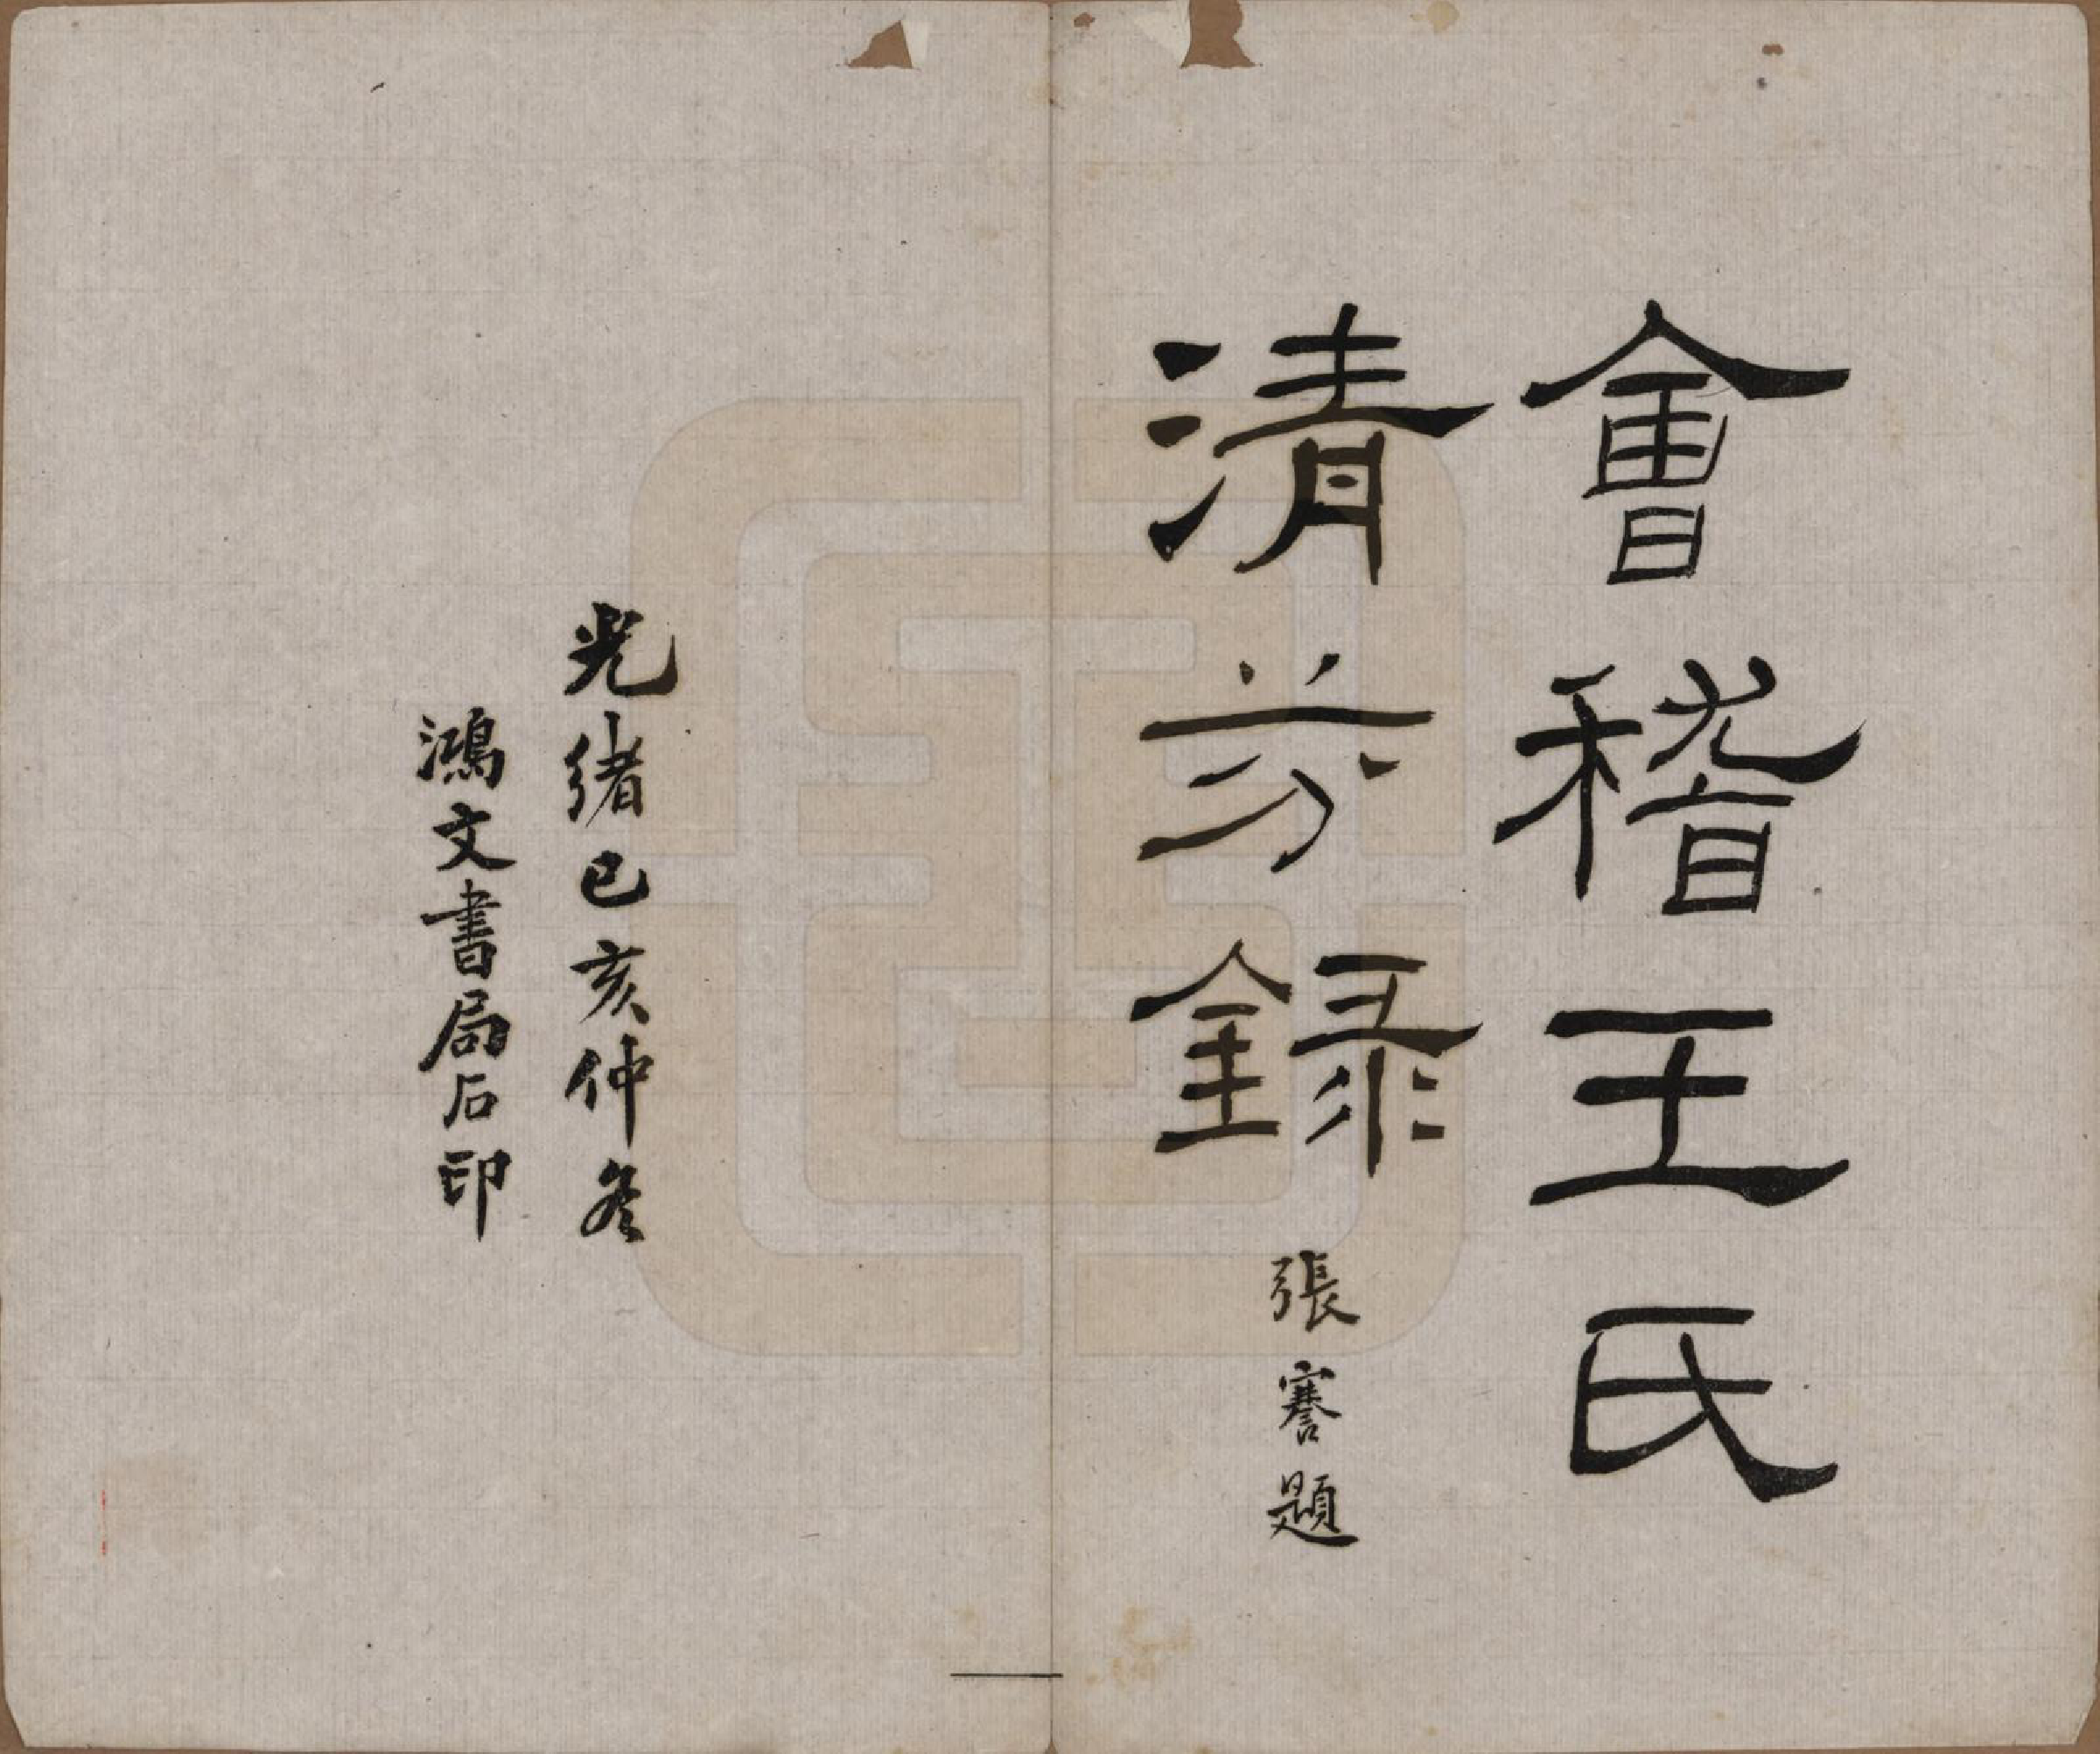 會稽王氏
清芬錄
張謇題
光緒己亥仲冬
鴻文書局石印